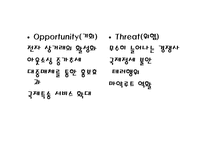 • Opportunity(기회)
전자 상거래의 활성화
아웃소싱 증가추세
대중매체를 통한 홍보효
과
국제특송 서비스 확대
• Threat(위협)
무수히 늘어나는 경쟁사
국제정세 불안
테러행위
마약루트 역할